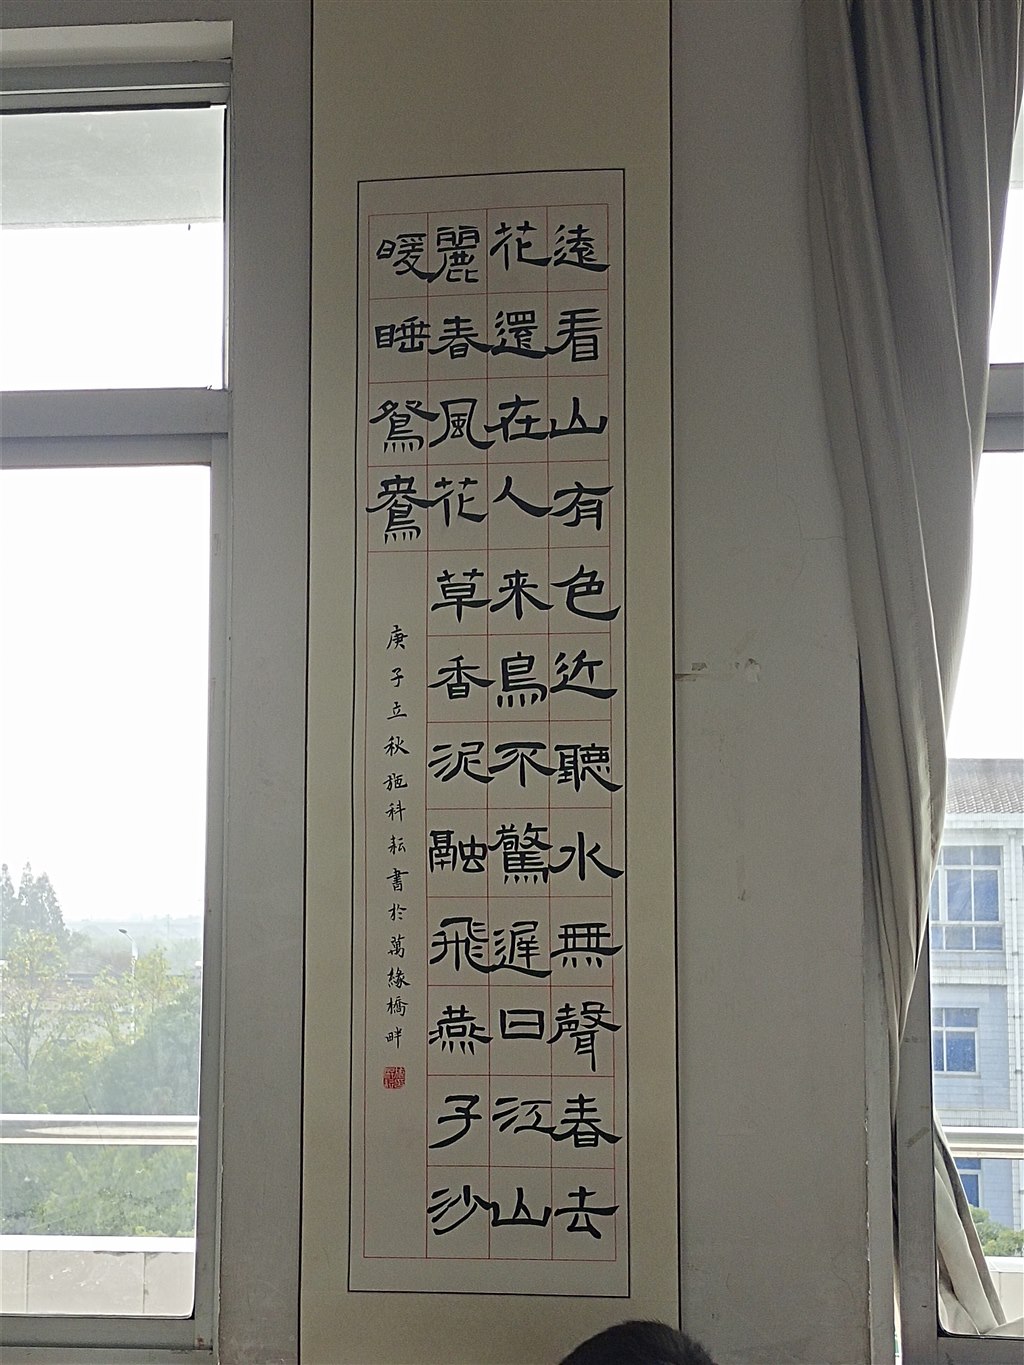 遠看山有色近聽水無聲春去
花還在人来鳥不驚遲日江山
麗春風花草香泥融飛燕子沙
暖睡鴛鴦
庚子立秋施科耘書於萬緣橋畔